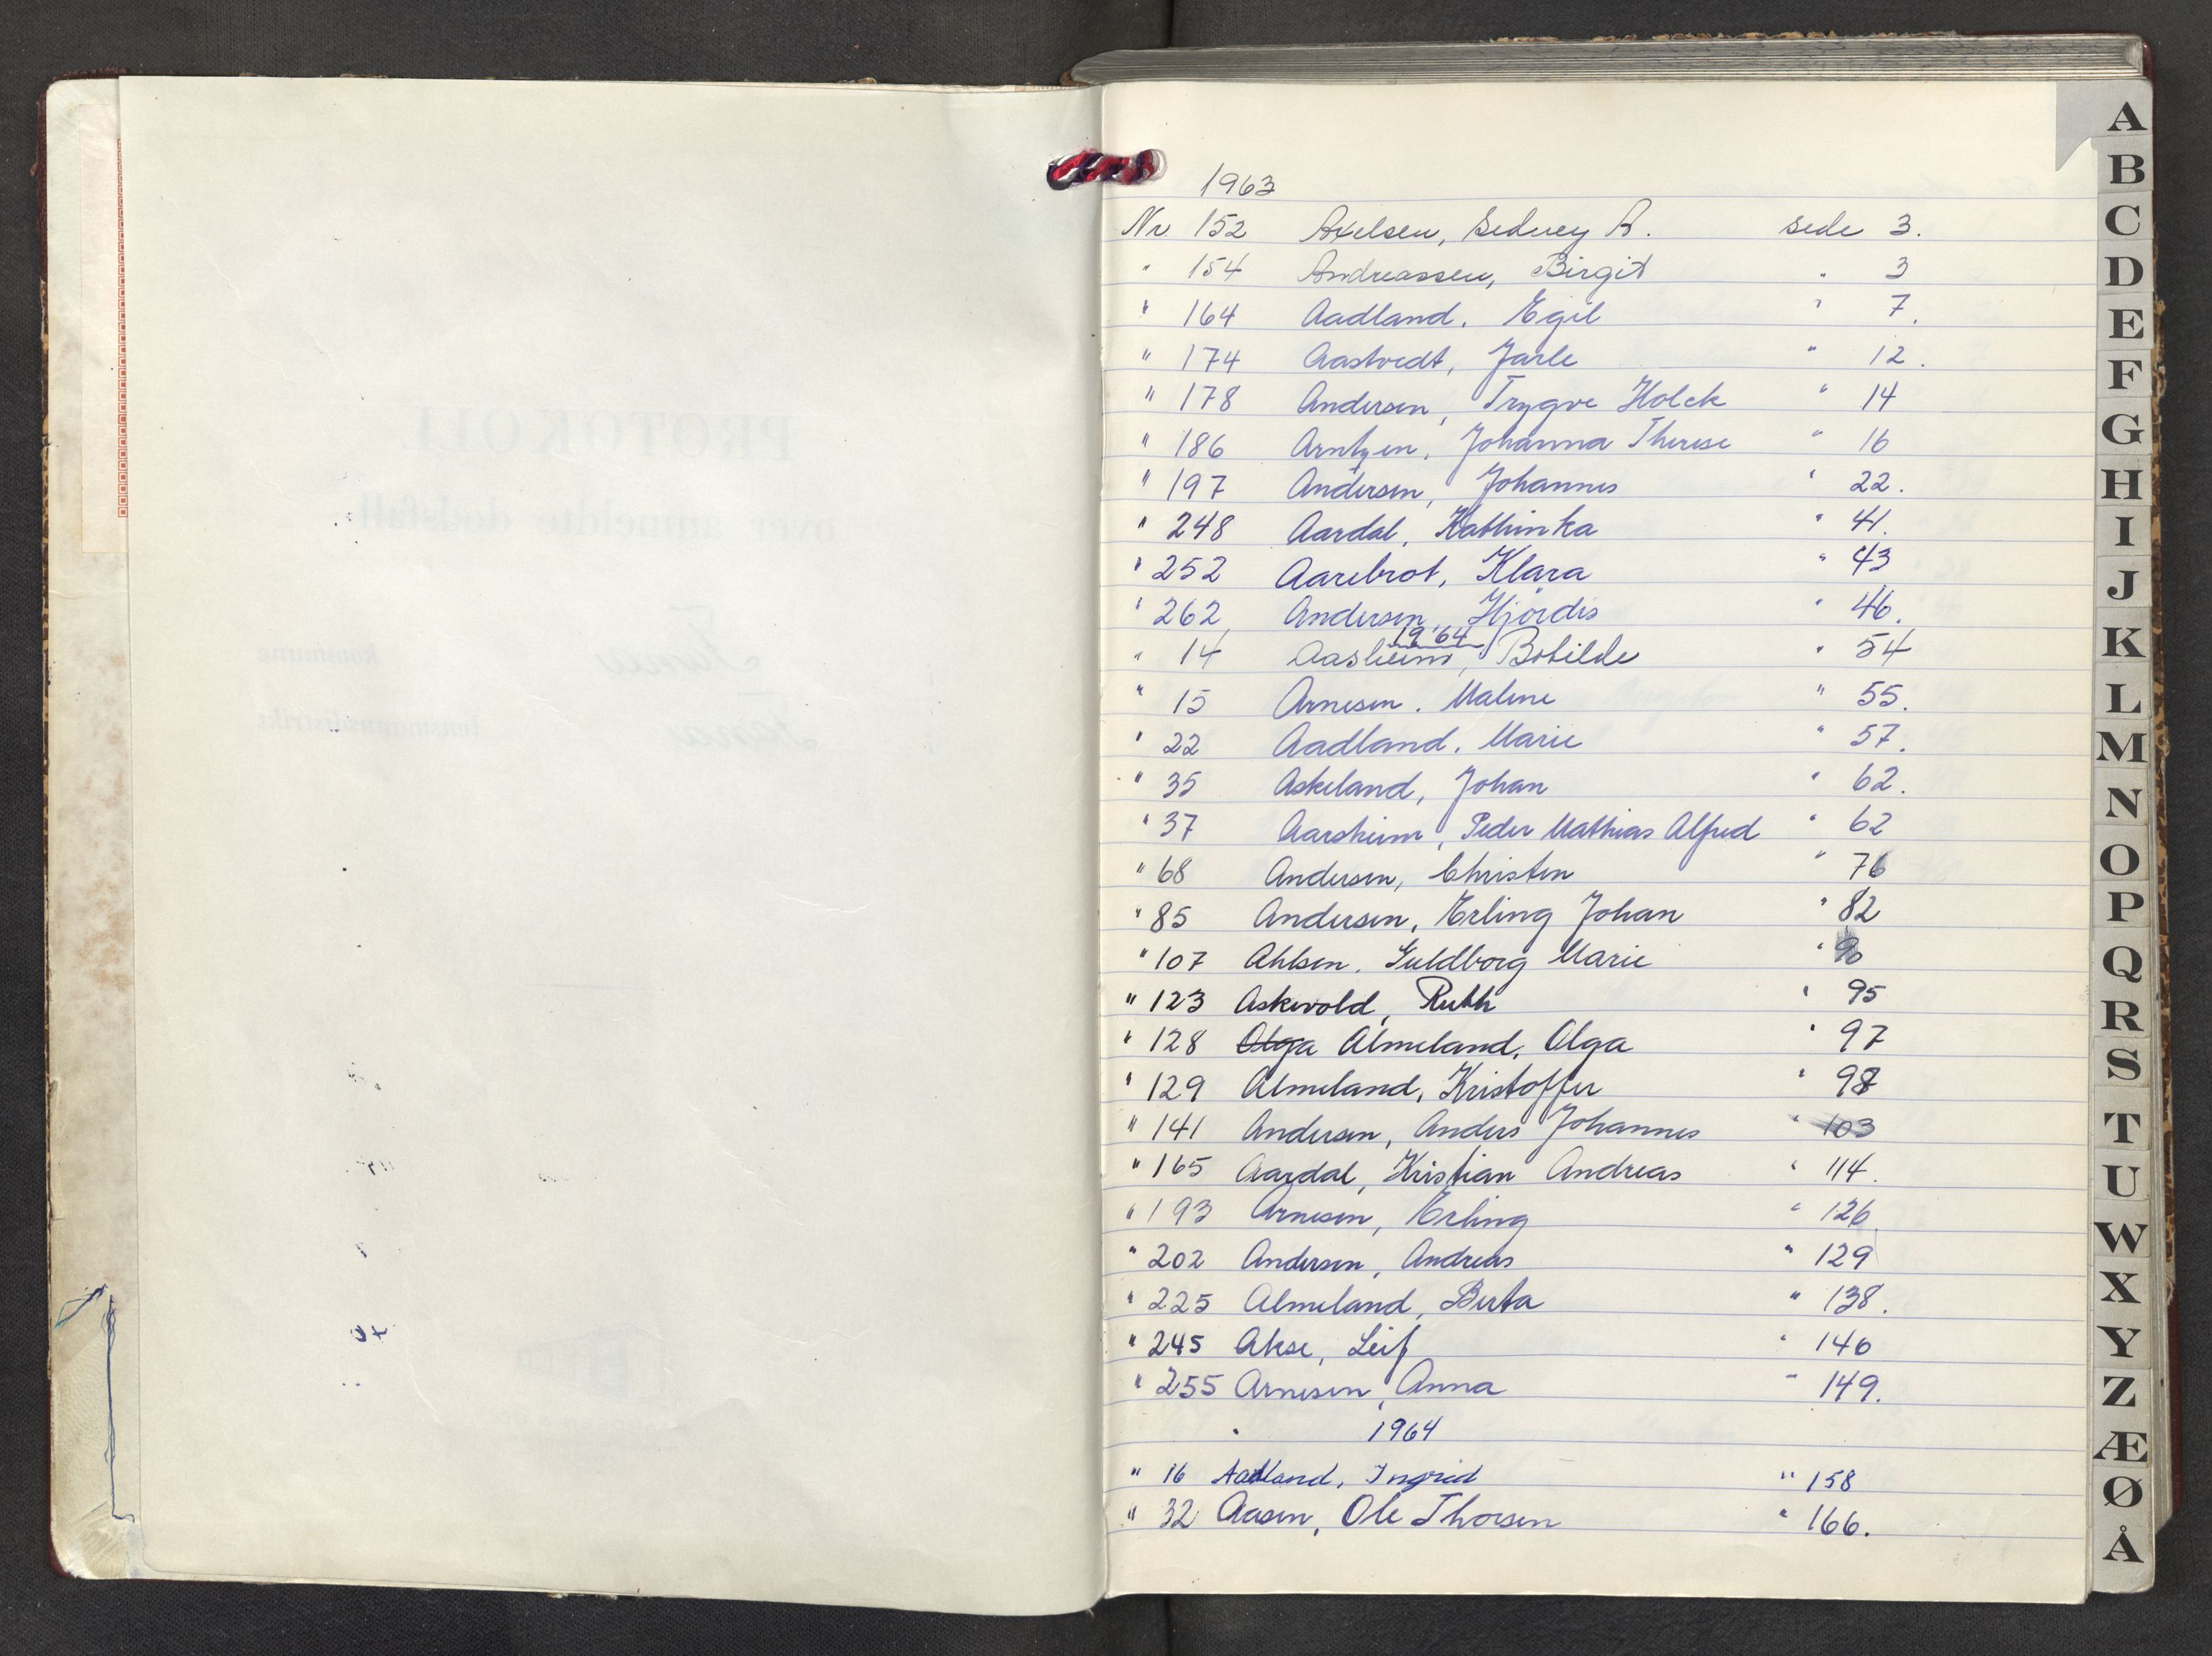 1963
Nr. 152 Axelsen, Sedney A. side 3.
" 154 Andreassen, Birgit " 3
" 164 Aadland, Egil " 7.
" 174 Aastvedt, Jarle " 12.
" 178 Andersen, Trygve Holck " 14
" 186 Arntzen, Johanna Therese " 16
" 197 Andersen, Johannes " 22.
" 248 Aardal, Kathinka " 41.
" 252 Aarebrot, Klara " 43
" 262 Andersen, Hjördis " 46.
1964
" 14 Aasheim, Botilde " 54
" 15 Arnesen, Malene " 55.
" 22 Aadland, Marie " 57.
" 35 Askeland, Johan " 62.
" 37 Aarsheim, Peder Mathias Alfred " 62
" 68 Andersen, Christen " 76
" 85 Andersen, Erling Johan " 82
" 107 Ahlsen, Guldborg Marie " 90
" 123 Askevold, Ruth " 95
" 128 Olga Almeland, Olga " 97
" 129 Almeland, Kristoffer " 98
" 141 Andersen, Anders Johannes " 103
" 165 Aardal, Kristian Andreas " 114.
" 193 Arnesen, Erling " 126
" 202 Andersen, Andreas " 129
" 225 Almeland, Berta " 138.
" 245 Akse, Leif " 146
" 255 Arnesen, Anna " 149.
1964
" 16 Aadland, Ingrid " 158
" 32 Aasen, Ole Thorsen " 166.
A
B
C
D
E
F
G
H
I
J
K
L
M
N
O
P
Q
R
S
T
U
W
X
Y
Z
Æ
Ø
Å